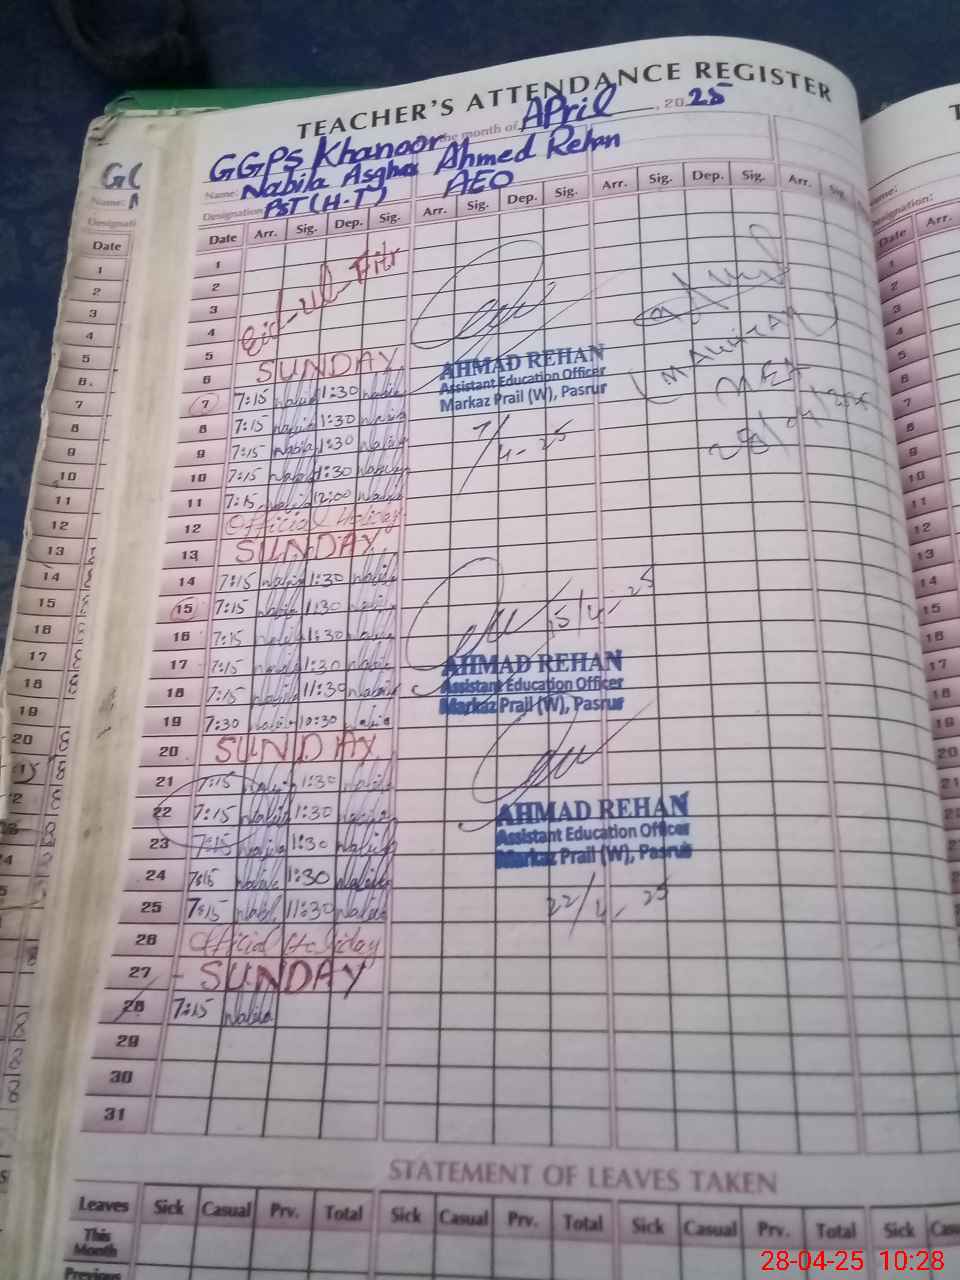 TEACHER'S ATTENDANCE REGISTER
the month of April, 2025
GGPS Khanoor Ahmed Rehan
Name: Nabila Asghar AEO
Designation PST (H.T)
Date Arr. Sig. Dep. Sig. Arr. Sig. Dep. Sig. Arr. Sig. Dep. Sig. Arr. Sig.
1
2
3
4
Eid-ul-Fitr
5
6 SUNDAY
7 7:15 Nabila 1:30 Nabila
8 7:15 Nabila 1:30 Nabila
9 7:15 Nabila 1:30 Nabila
10 7:15 Nabila 1:30 Nabila
11 7:15 Nabila 12:00 Nabila
12 Official Holiday
13 SUNDAY
14 7:15 Nabila 1:30 Nabila
15 7:15 Nabila 1:30 Nabila
16 7:15 Nabila 1:30 Nabila
17 7:15 Nabila 1:30 Nabila
18 7:15 Nabila 11:30 Nabila
19 7:30 Nabila 10:30 Nabila
20 SUNDAY
21 7:15 Nabila 1:30 Nabila
22 7:15 Nabila 1:30 Nabila
23 7:15 Nabila 1:30 Nabila
24 7:15 Nabila 1:30 Nabila
25 7:15 Nabila 11:30 Nabila
26 Official Holiday
27 SUNDAY
28 7:15 Nabila
29
30
31
AHMAD REHAN
Assistant Education Officer
Markaz Prail (W), Pasrur
7/4-25
15/4-25
AHMAD REHAN
Assistant Education Officer
Markaz Prail (W), Pasrur
AHMAD REHAN
Assistant Education Officer
Markaz Prail (W), Pasrur
22/4-25
MEA
28/04/25
STATEMENT OF LEAVES TAKEN
Leaves Sick Casual Prv. Total Sick Casual Prv. Total Sick Casual Prv. Total Sick
This Month
Previous
28-04-25 10:28